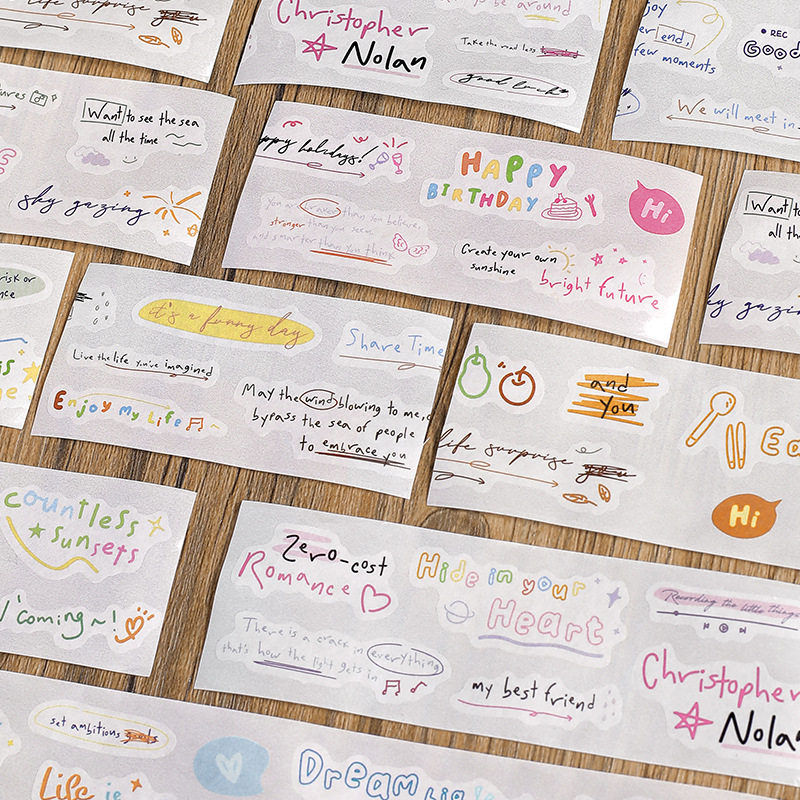 life surprise you
Christopher
Nolan
to be around
Take the road less
good luck
enjoy
end,
few moments
REC
Good
We will meet in
Want to see the sea
all the time
sky gazing
happy holidays!
You are braver than you believe,
stronger than you seem,
and smarter than you think
HAPPY
BIRTHDAY
Hi
Create your own
sunshine
bright future
Want to
all th
sky gazi
risk or
it's a funny day
Share Time
Live the life you've imagined
Enjoy My Life
May the wind blowing to me,
bypass the sea of people
to embrace you
and
you
life surprise you
Ea
Hi
countless
sunsets
coming~!
Zero-cost
Romance
Hide in your
Heart
There is a crack in everything
that's how the light gets in
my best friend
Recording the little things
Christopher
Nolan
set ambitious goals
Life is
Dream